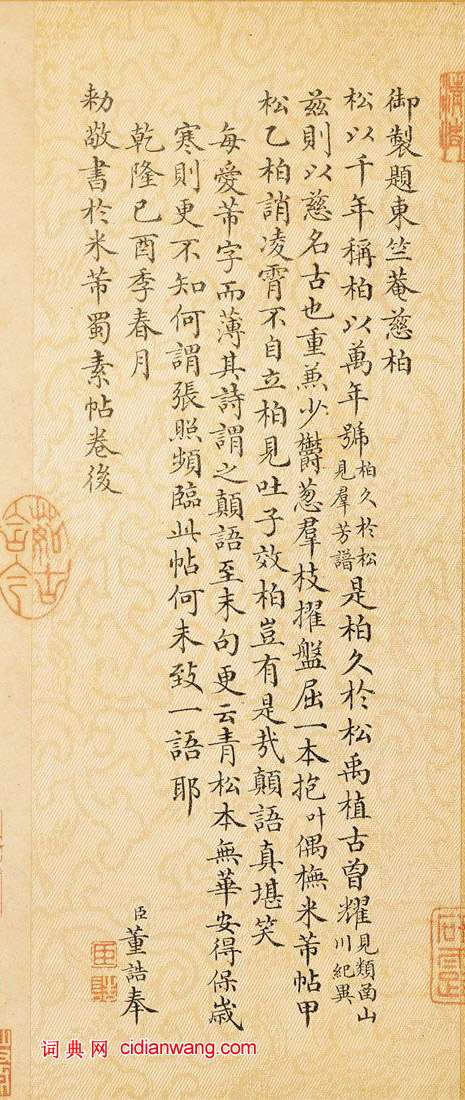 御製題東竺菴慈柏
松以千年稱柏以萬年號柏久於松見羣芳譜是柏久於松禹植古曾耀見類函山川紀異
茲則以慈名古也重兼少欝葱羣枝擢盤屈一本抱叶偶橅米芾帖甲
松乙柏誚凌霄不自立柏見吐子效柏豈有是哉顛語真堪笑
每愛芾字而薄其詩謂之顛語至末句更云青松本無華安得保歲
寒則更不知何謂張照頻臨此帖何未致一語耶
乾隆己酉季春月 臣董誥奉
勅敬書於米芾蜀素帖卷後
茹古含今
词典网 cidianwang.com